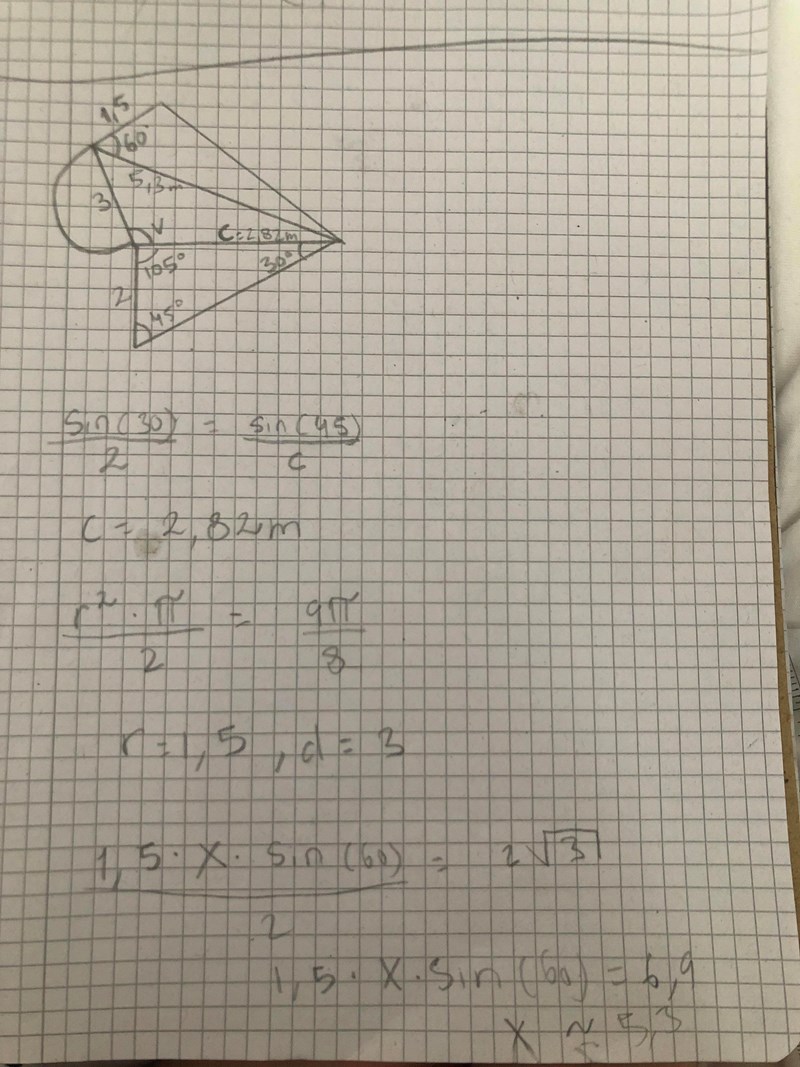 1,5
60°
5,3m
3
v
C=2,82m
105°
30°
2
45°
sin(30)/2 = sin(45)/c
c = 2,82m
r² · π/2 = 9π/8
r=1,5 , d= 3
1,5 · X · sin(60)/2 = 2√3
1,5 · X · sin(60) = 6,9
X ≈ 5,3